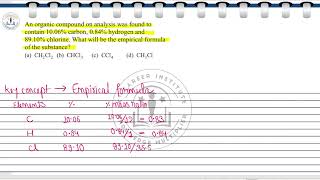 An organic compound on analysis was found to
contain 10.06% carbon, 0.84% hydrogen and
89.10% chlorine. What will be the empirical formula
of the substance?
(a) CH₂Cl₂ (b) CHCl₃ (c) CCl₄ (d) CH₃Cl
Key concept → Empirical formula
Elements % % mass ratio
C 10.06 10.06/12 = 0.83
H 0.84 0.84/1 = 0.84
Cl 89.10 89.10/35.5
CAREER INSTITUTE
KNOWLEDGE MULTIPLIER